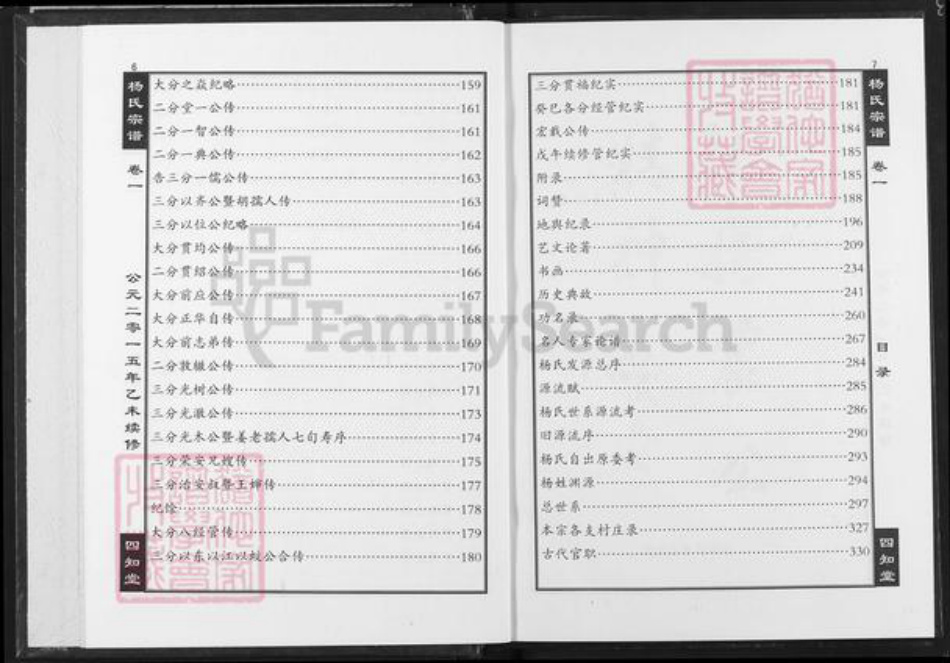 6
杨氏宗谱
卷一
公元二零一五年乙未续修
四知堂
大分之焱纪略 159
二分堂一公传 161
二分一智公传 161
二分一典公传 162
三分一儒公传 163
三分以齐公暨胡孺人传 163
三分以位公纪略 164
大分贯均公传 166
二分贯绍公传 166
大分前应公传 167
大分正华自传 168
大分前志弟传 169
二分敦公传 170
三分光树公传 171
三分光澈公传 173
三分光木公暨姜老孺人七旬寿序 174
三分荣安兄嫂传 175
三分治安叔暨王婶传 177
纪馀 178
大分八经管传 179
三分以东以江以蛟公合传 180
7
三分贯福纪实 181
癸巳各分经管纪实 181
宏载公传 184
戊午续修管纪实 185
附录 185
词赞 188
地舆纪录 196
艺文论著 209
书画 234
历史典故 241
功名录 260
名人专家论谱 267
杨氏发源总序 284
源流赋 285
杨氏世系源流考 286
旧源流序 290
杨氏自出原委考 293
杨姓渊源 294
总世系 297
本宗各支村庄录 327
古代官职 330
杨氏宗谱
卷一
目录
四知堂
FamilySearch